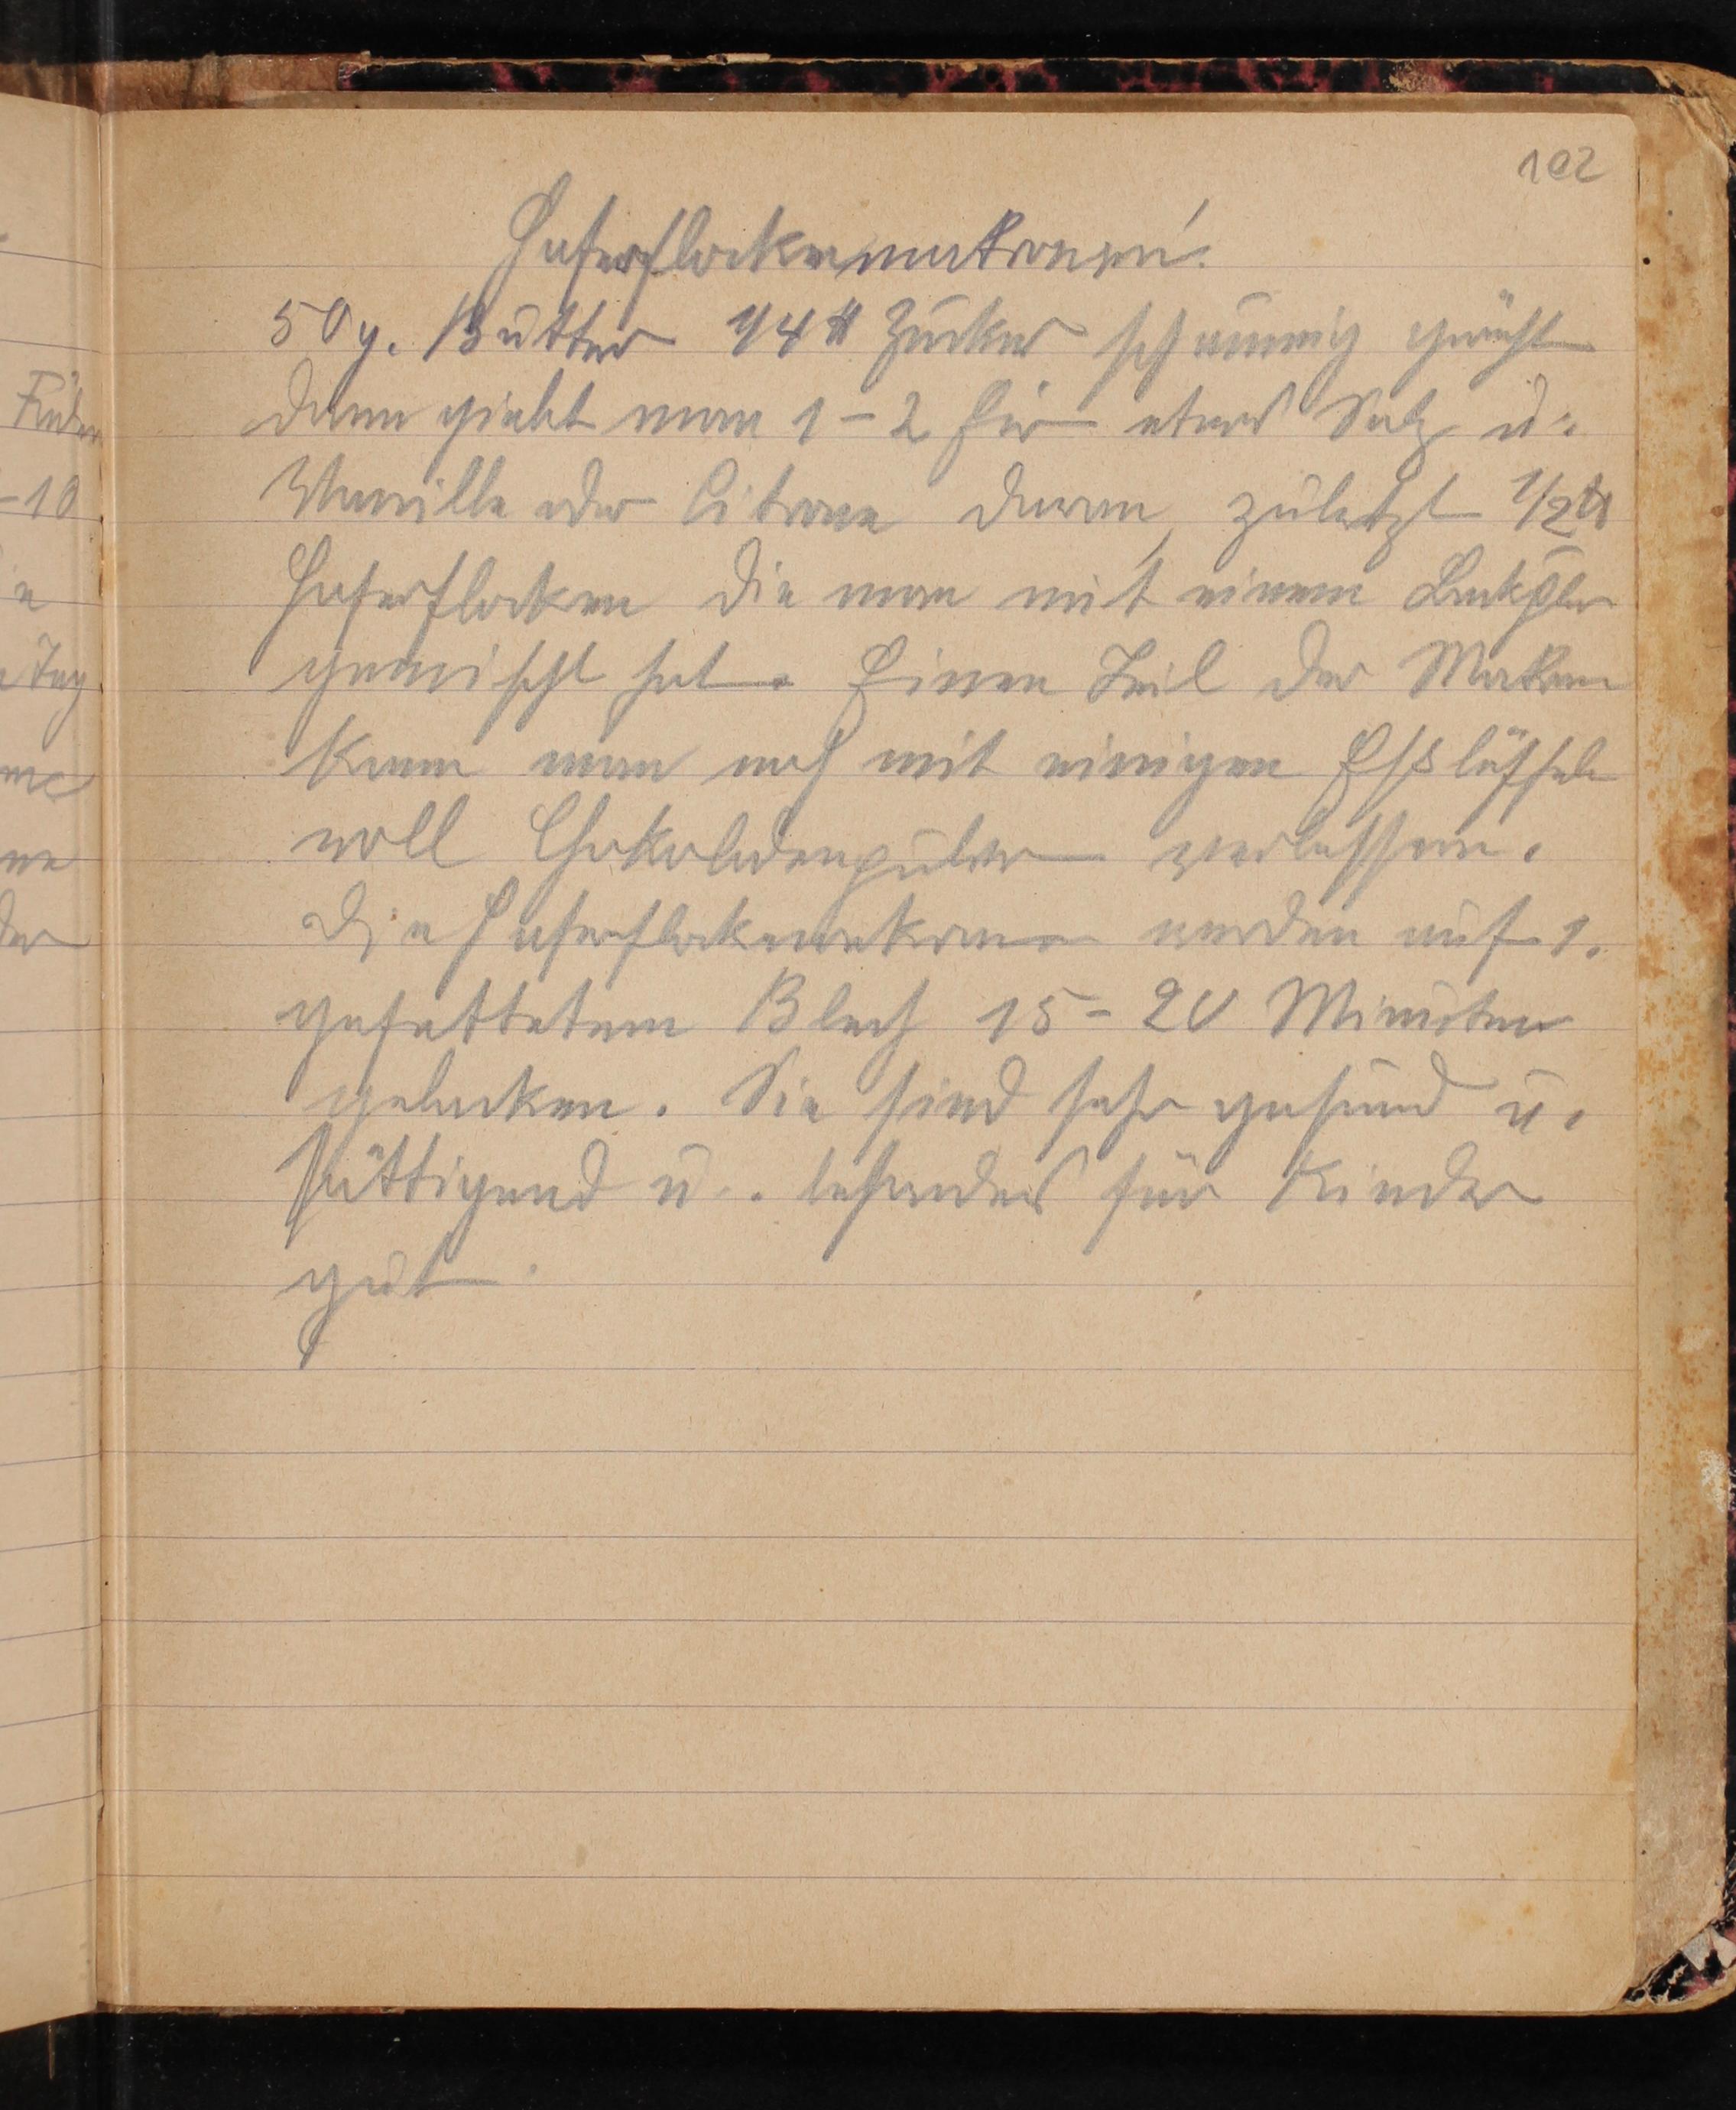 102
Haferflockenmakronen.
50 g. Butter 1/4 ℔ Zucker schaumig gerührt
dann giebt man 1–2 Eier etwas Salz u.
Vanille oder Citrone daran, zuletzt 1/2 ℔
Haferflocken die man mit einem Backpulver
gemischt hat. Einen Teil der Makronen
kann man noch mit einigen Eßlöffeln
voll Chokoladenpulver
Die Haferflockenmakronen werden auf 1.
gefettetem Blech 15–20 Minuten
gebacken. Sie sind sehr gesund u.
sättigend u. besonders für Kinder
gut.
–10
Tag
der